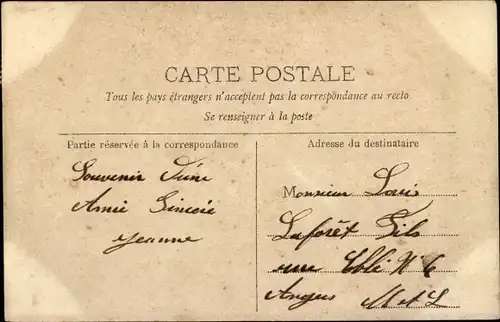 CARTE POSTALE
Tous les pays étrangers n'acceptent pas la correspondance au recto
Se renseigner à la poste
Partie réservée à la correspondance
Souvenir d'une
Amie Sincère
Jeanne
Adresse du destinataire
Monsieur Louis
Laforêt Fils
rue Eblé N° 6
Angers M et L